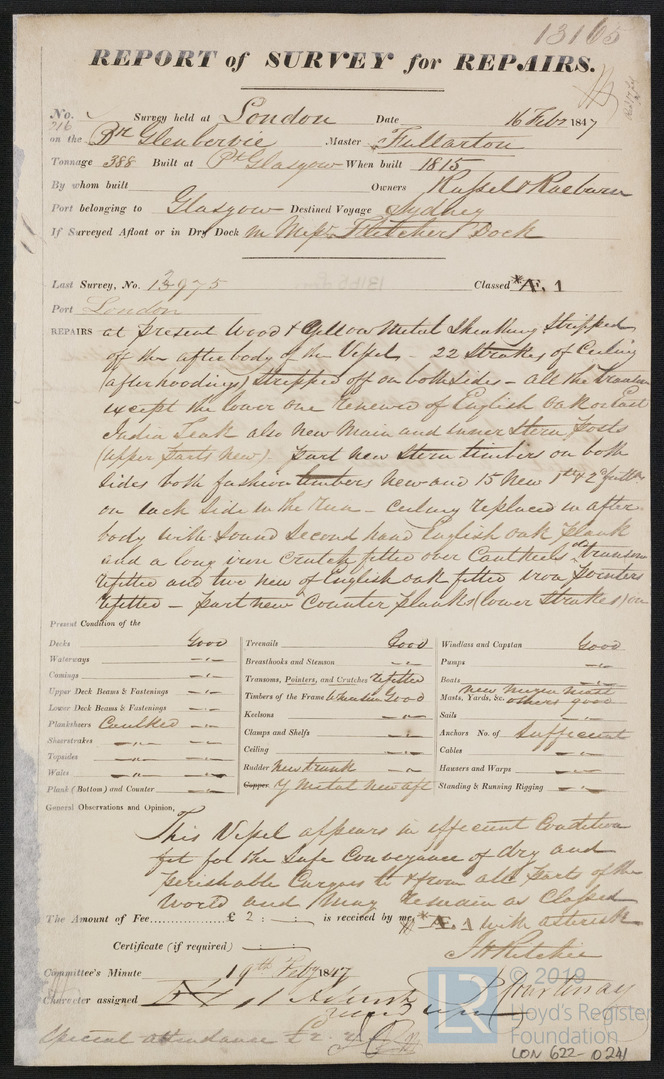 13165
REPORT of SURVEY for REPAIRS.
No. 216 Survey held at London Date 16 Feby 1847
on the Br Glenbervie Master Fullarton
Tonnage 388 Built at Pt Glasgow When built 1815
By whom built Owners Russel & Raeburn
Port belonging to Glasgow Destined Voyage Sydney
If Surveyed Afloat or in Dry Dock in Messrs Fletchers Dock
Last Survey, No. 13975 Classed *Æ, 1
Port London
REPAIRS at present Wood & Yellow Metal Sheathing Stripped
off the after body of the Vessel - 22 Strakes of Ceiling
(afterhoodings) Stripped off on both sides - all the transoms
except the lower one renewed of English Oak or East
India Teak also new Main and inner Stern Posts
(upper parts new). Part new Stern timbers on both
sides both fashion timbers new and 15 new 1st & 2d futtks
on each side in the run - ceiling replaced in after
body with sound second hand English oak plank
and a long iron crutch fitted over Caulked transom
refitted and two new of English oak fitted iron pointers
refitted - part new Counter planks (lower strakes) on
Present Condition of the
Decks Good
Waterways -"-
Comings -"-
Upper Deck Beams & Fastenings -"-
Lower Deck Beams & Fastenings -"-
Planksheers Caulked -"-
Sheerstrakes -"- -"-
Topsides -"- -"-
Wales -"- -"-
Plank (Bottom) and Counter -"- -"-
Treenails Good
Breasthooks and Stemson -"-
Transoms, Pointers, and Crutches refitted
Timbers of the Frame when seen Good
Keelsons -"-
Clamps and Shelfs -"-
Ceiling -"-
Rudder New trunk -"-
Copper Y Metal new aft
Windlass and Capstan Good
Pumps -"-
Boats -"-
Masts, Yards, &c. new mizen mast others good
Sails -"-
Anchors No. of Sufficient
Cables -"-
Hausers and Warps -"-
Standing & Running Rigging -"-
General Observations and Opinion,
This Vessel appears in efficient Condition
fit for the Safe Conveyance of dry and
perishable Cargoes to & from all parts of the
World and may remain as Classed
The Amount of Fee............... £ 2 : - : - is received by me, *Æ. 1 with asterisk
Certificate (if required) - : - : -
J H Ritchie
Committee's Minute 19th Feby 1847
Character assigned Æ 1
Special attendance £2. 2
© 2019
LR Lloyd's Register
Foundation
LON 622-0241